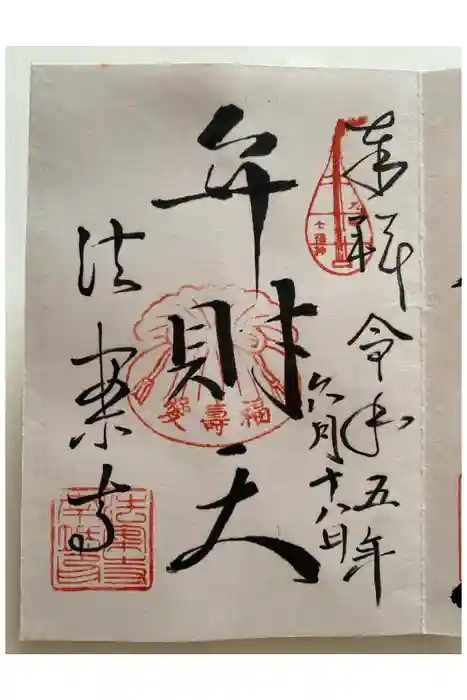 奉拝
七福神
令和五年
六月十八日
弁財天
福壽愛
法案寺